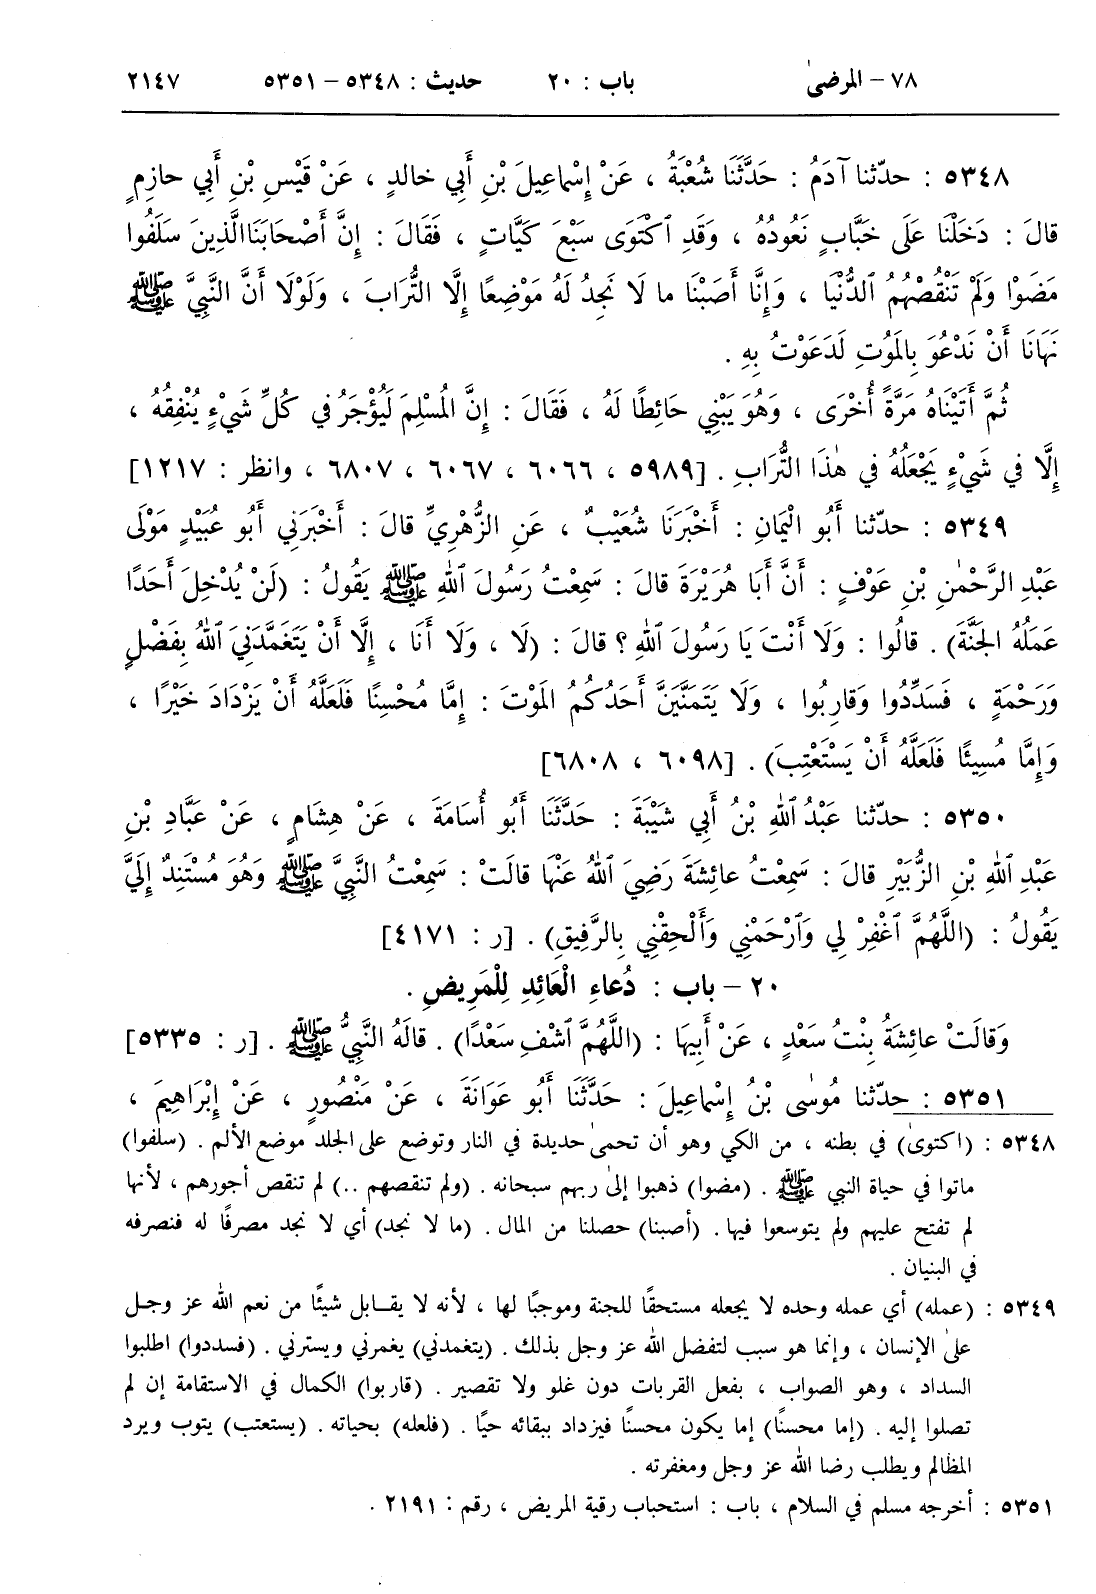 ٧٨ – المرضىٰ باب : ٢٠ حديث : ٥٣٤٨ – ٥٣٥١ ٢١٤٧
٥٣٤٨ : حدّثنا آدَمُ : حَدَّثَنَا شُعْبَةُ ، عَنْ إِسْماعِيلَ بْنِ أَبِي خالدٍ ، عَنْ قَيْسِ بْنِ أَبِي حازِمٍ
قالَ : دَخَلْنَا عَلَى خَبَّابٍ نَعُودُهُ ، وَقَدِ ٱكْتَوَى سَبْعَ كَيَّاتٍ ، فَقَالَ : إِنَّ أَصْحَابَنَا الَّذِينَ سَلَفُوا
مَضَوْا وَلَمْ تَنْقُصْهُمُ ٱلدُّنْيَا ، وَإِنَّا أَصَبْنَا ما لَا نَجِدُ لَهُ مَوْضِعًا إِلَّا التُّرَابَ ، وَلَوْلَا أَنَّ النَّبِيَّ ﷺ
نَهَانَا أَنْ نَدْعُوَ بِالمَوْتِ لَدَعَوْتُ بِهِ .
ثُمَّ أَتَيْنَاهُ مَرَّةً أُخْرَى ، وَهُوَ يَبْنِي حَائِطًا لَهُ ، فَقَالَ : إِنَّ المُسْلِمَ لَيُؤْجَرُ في كُلِّ شَيْءٍ يُنْفِقُهُ ،
إِلَّا في شَيْءٍ يَجْعَلُهُ في هٰذَا التُّرَابِ . [٥٩٨٩ ، ٦٠٦٦ ، ٦٠٦٧ ، ٦٨٠٧ ، وانظر : ١٢١٧]
٥٣٤٩ : حدّثنا أَبُو الْيَمانِ : أَخْبَرَنَا شُعَيْبٌ ، عَنِ الزُّهْرِيِّ قالَ : أَخْبَرَنِي أَبُو عُبَيْدٍ مَوْلَى
عَبْدِ الرَّحْمٰنِ بْنِ عَوْفٍ : أَنَّ أَبَا هُرَيْرَةَ قالَ : سَمِعْتُ رَسُولَ ٱللهِ ﷺ يَقُولُ : (لَنْ يُدْخِلَ أَحَدًا
عَمَلُهُ الجَنَّةَ) . قالُوا : وَلَا أَنْتَ يَا رَسُولَ ٱللهِ ؟ قالَ : (لَا ، وَلَا أَنَا ، إِلَّا أَنْ يَتَغَمَّدَنِيَ ٱللهُ بِفَضْلٍ
وَرَحْمَةٍ ، فَسَدِّدُوا وَقارِبُوا ، وَلَا يَتَمَنَّيَنَّ أَحَدُكُمُ المَوْتَ : إِمَّا مُحْسِنًا فَلَعَلَّهُ أَنْ يَزْدَادَ خَيْرًا ،
وَإِمَّا مُسِيئًا فَلَعَلَّهُ أَنْ يَسْتَعْتِبَ) . [٦٠٩٨ ، ٦٨٠٨]
٥٣٥٠ : حدّثنا عَبْدُ ٱللهِ بْنُ أَبِي شَيْبَةَ : حَدَّثَنَا أَبُو أُسَامَةَ ، عَنْ هِشَامٍ ، عَنْ عَبَّادِ بْنِ
عَبْدِ ٱللهِ بْنِ الزُّبَيْرِ قالَ : سَمِعْتُ عائِشَةَ رَضِيَ ٱللهُ عَنْهَا قالَتْ : سَمِعْتُ النَّبِيَّ ﷺ وَهُوَ مُسْتَنِدٌ إِلَيَّ
يَقُولُ : (اللَّهُمَّ ٱغْفِرْ لِي وَٱرْحَمْنِي وَأَلْحِقْنِي بِالرَّفِيقِ) . [ر : ٤١٧١]
٢٠ – باب : دُعاءِ الْعَائِدِ لِلْمَرِيضِ .
وَقالَتْ عائِشَةُ بِنْتُ سَعْدٍ ، عَنْ أَبِيهَا : (اللَّهُمَّ ٱشْفِ سَعْدًا) . قالَهُ النَّبِيُّ ﷺ . [ر : ٥٣٣٥]
٥٣٥١ : حدّثنا مُوسٰى بْنُ إِسْماعِيلَ : حَدَّثَنَا أَبُو عَوَانَةَ ، عَنْ مَنْصُورٍ ، عَنْ إِبْرَاهِيمَ ،
٥٣٤٨ : (اكتوىٰ) في بطنه ، من الكي وهو أن تحمىٰ حديدة في النار وتوضع على الجلد موضع الألم . (سلفوا)
ماتوا في حياة النبي ﷺ . (مضوا) ذهبوا إلىٰ ربهم سبحانه . (ولم تنقصهم ..) لم تنقص أجورهم ، لأنها
لم تفتح عليهم ولم يتوسعوا فيها . (أصبنا) حصلنا من المال . (ما لا نجد) أي لا نجد مصرفًا له فنصرفه
في البنيان .
٥٣٤٩ : (عمله) أي عمله وحده لا يجعله مستحقًا للجنة وموجبًا لها ، لأنه لا يقابل شيئًا من نعم الله عز وجل
علىٰ الإنسان ، وإنما هو سبب لتفضل الله عز وجل بذلك . (يتغمدني) يغمرني ويسترني . (فسددوا) اطلبوا
السداد ، وهو الصواب ، بفعل القربات دون غلو ولا تقصير . (قاربوا) الكمال في الاستقامة إن لم
تصلوا إليه . (إما محسنًا) إما يكون محسنًا فيزداد ببقائه حيًا . (فلعله) بحياته . (يستعتب) يتوب ويرد
المظالم ويطلب رضا الله عز وجل ومغفرته .
٥٣٥١ : أخرجه مسلم في السلام ، باب : استحباب رقية المريض ، رقم : ٢١٩١ .